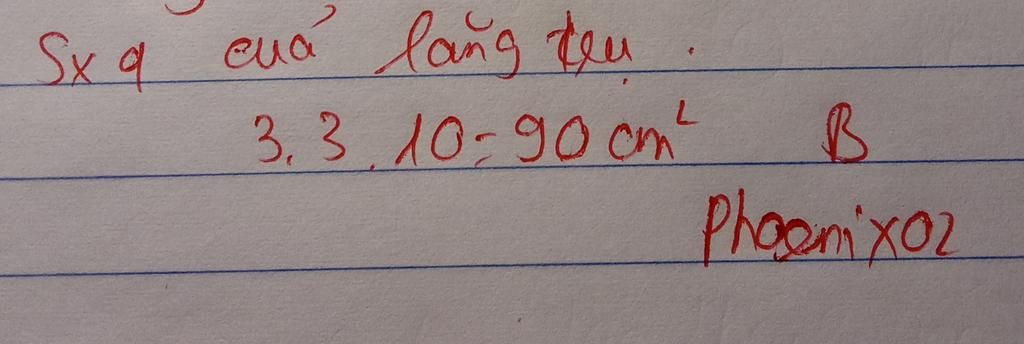 Sxq cuả lăng trụ.
3.3.10=90cm²   B
Phoenix02